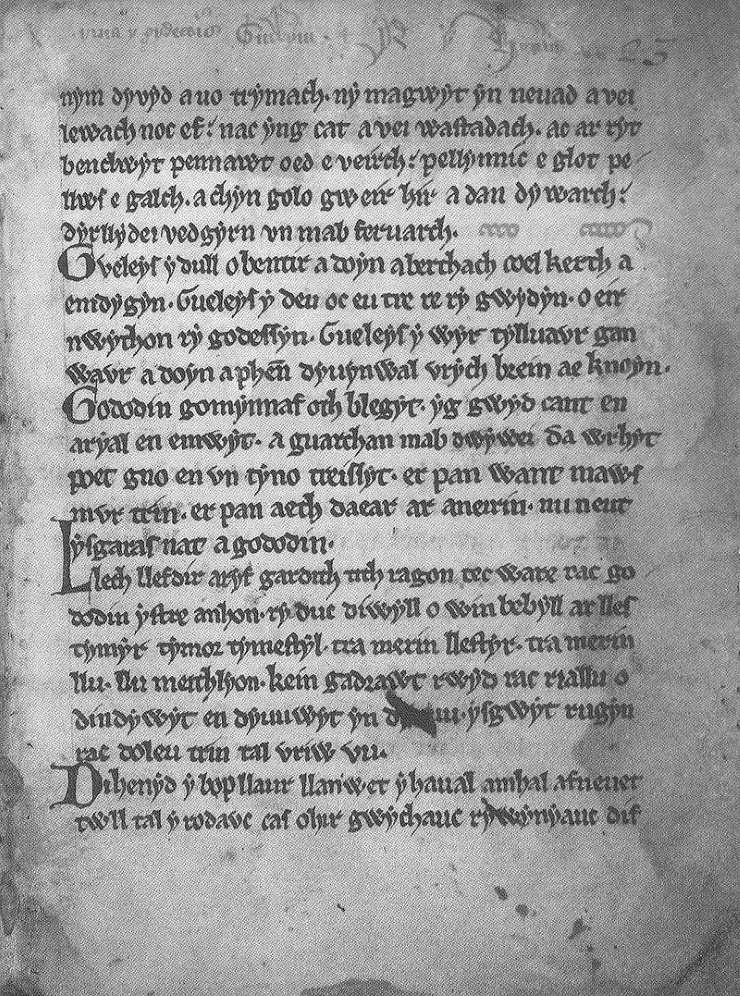 nym dyvyd a uo trymach. ny magwyt yn neuad a vei
lewach noc ef. nac yng cat a vei wastadach. ac ar ryt
benclwyt pennawt oed e veirch. pellynnic e glot pe
llws e galch. a chyn golo gweir hir a dan dywarch.
dyrllydei vedgyrn un mab feruarch.
Gveleys y dull o bentir a doyn aberthach coel kerth a
emdygyn. Gueleys y deu oc eu tre re ry gwydyn. o eir
nwython ry godessyn. Gueleys y wyr tylluavr gan
wavr a doyn a phen dyuynwal vrych brein ae knoyn.
Gododin gomynnaf oth blegyt. yg gwyd cant en
aryal en emwyt. a guarchan mab dwywei da wrhyt
poet gno en vn tyno treissyt. er pan want maws
mvr trin. er pan aeth daear ar aneirin. nu neut
ysgaras nat a gododin.
Llech llefdir aryf gardith tith ragon tec ware rac go
dodin ystre anhon. ry duc diwyll o win bebyll ar lles
tymyr tymor tymestyl. tra merin llestyr. tra merin
llu. llu meithlyon. kein gadrawt rwyd rac riallu o
dindywyt en dyuuwyt yn ysgwyt rugyn
rac doleu trin tal vriw vu.
Dihenyd y bop llaur llanwet y haual amhal afneuet
twll tal y rodawc cas ohir gwychauc rywynyauc dif